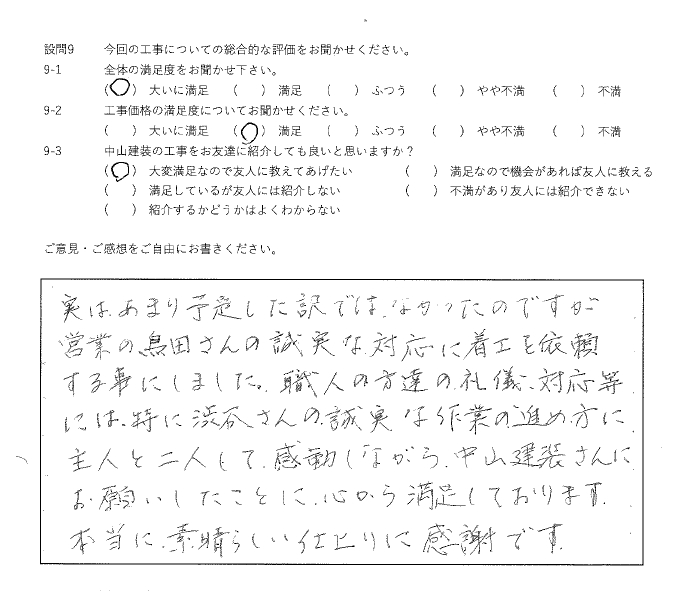 設問9 今回の工事についての総合的な評価をお聞かせください。
9-1 全体の満足度をお聞かせ下さい。
(○) 大いに満足 ( ) 満足 ( ) ふつう ( ) やや不満 ( ) 不満
9-2 工事価格の満足度についてお聞かせください。
( ) 大いに満足 (○) 満足 ( ) ふつう ( ) やや不満 ( ) 不満
9-3 中山建装の工事をお友達に紹介しても良いと思いますか？
(○) 大変満足なので友人に教えてあげたい ( ) 満足なので機会があれば友人に教える
( ) 満足しているが友人には紹介しない ( ) 不満があり友人には紹介できない
( ) 紹介するかどうかはよくわからない
ご意見・ご感想をご自由にお書きください。
実は、あまり予定した訳では、なかったのですが
営業の鳥田さんの誠実な、対応に着工を依頼
する事にしました。職人の方達の礼儀、対応等
には、特に渋谷さんの、誠実な作業の進め方に
主人と二人して、感動しながら、中山建装さんに
お願いしたことに、心から満足しております。
本当に、素晴らしい仕上りに感謝です。